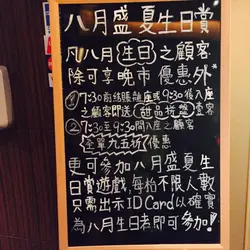 八月盛夏生日賞
凡八月生日之顧客
除可享晚市優惠外*
①7:30前結賬離座或9:30後入座
之顧客即送甜品拼盤壹客
②7:30至9:30間入座之顧客
全單九五折優惠
更可參加八月盛夏生
日賞遊戲,每枱不限人數
只需出示ID Card以確實
為八月生日者即可參加!